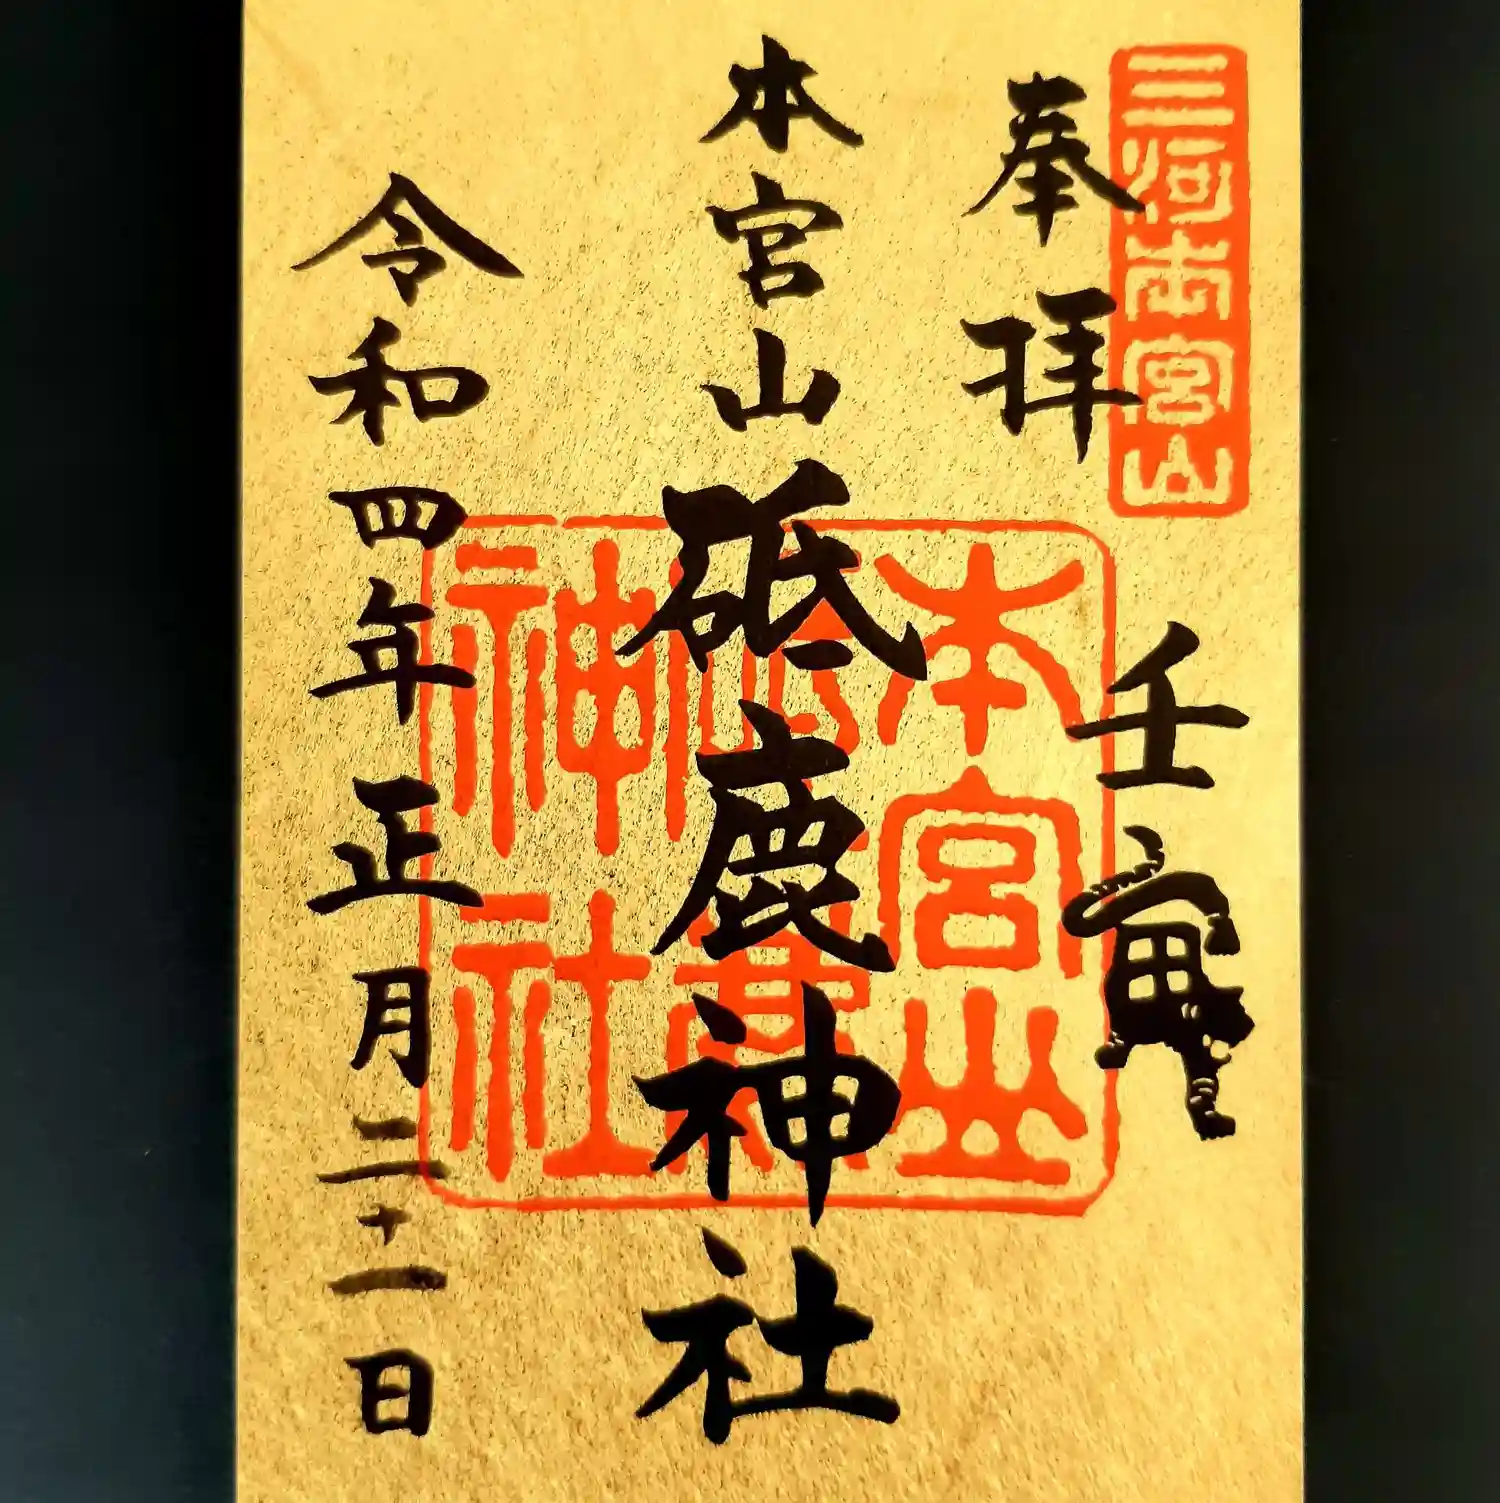 三河本宮山
奉拝
壬寅
本宮山砥鹿神社
本宮山
砥鹿
神社
令和四年正月二十一日